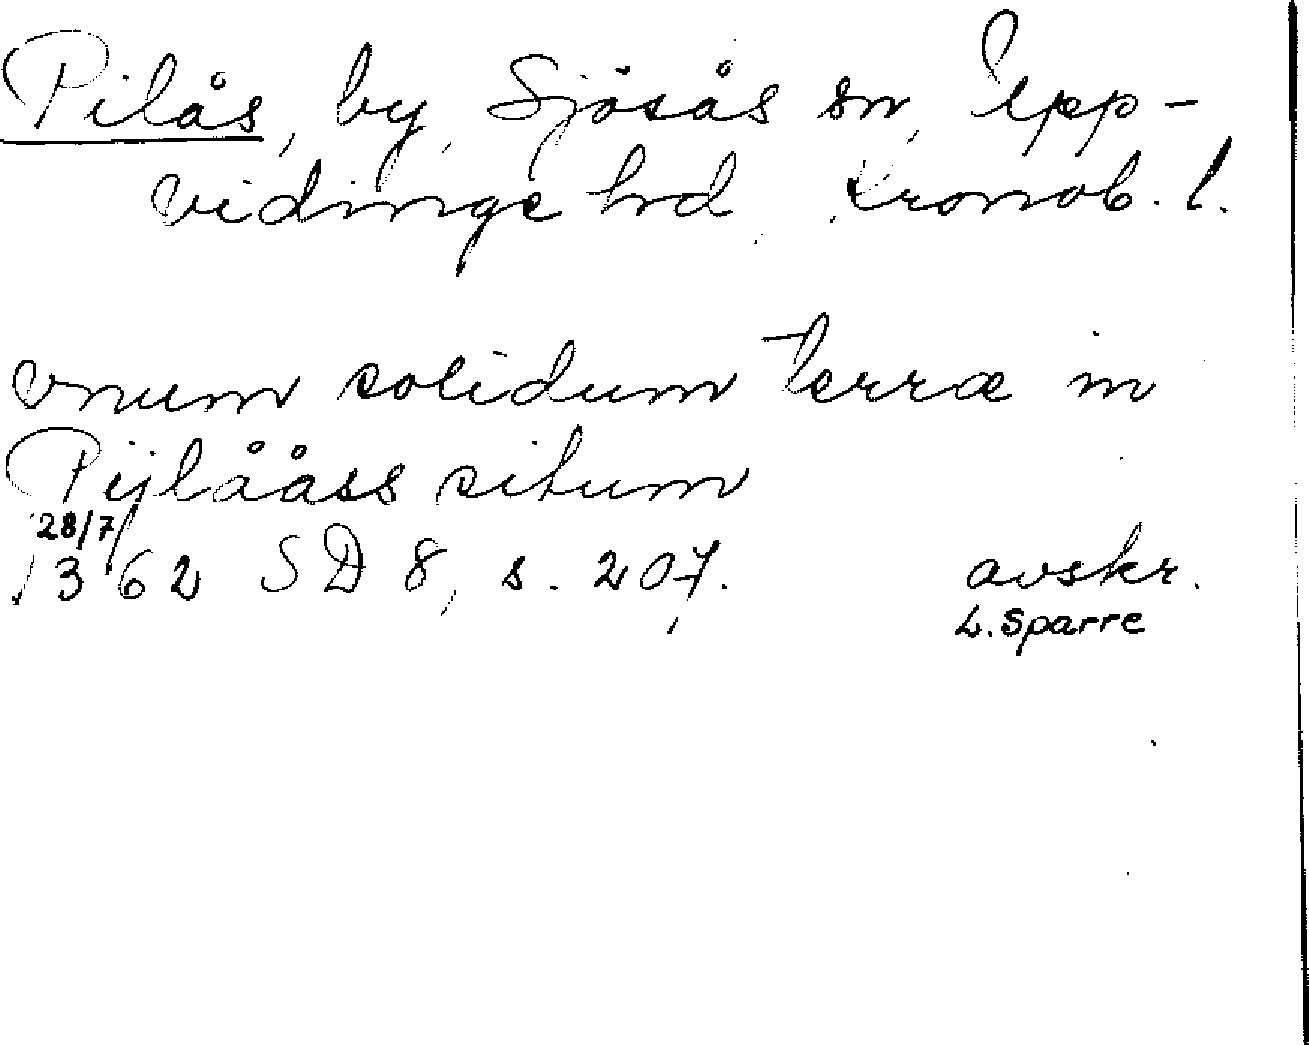 Pilås, by, Sjösås sn, Upp-
vidinge hd Kronob. l.
vnum solidum terræ in
Pijlååss situm
28/7
1362 SD 8, s. 207. avskr.
L. Sparre